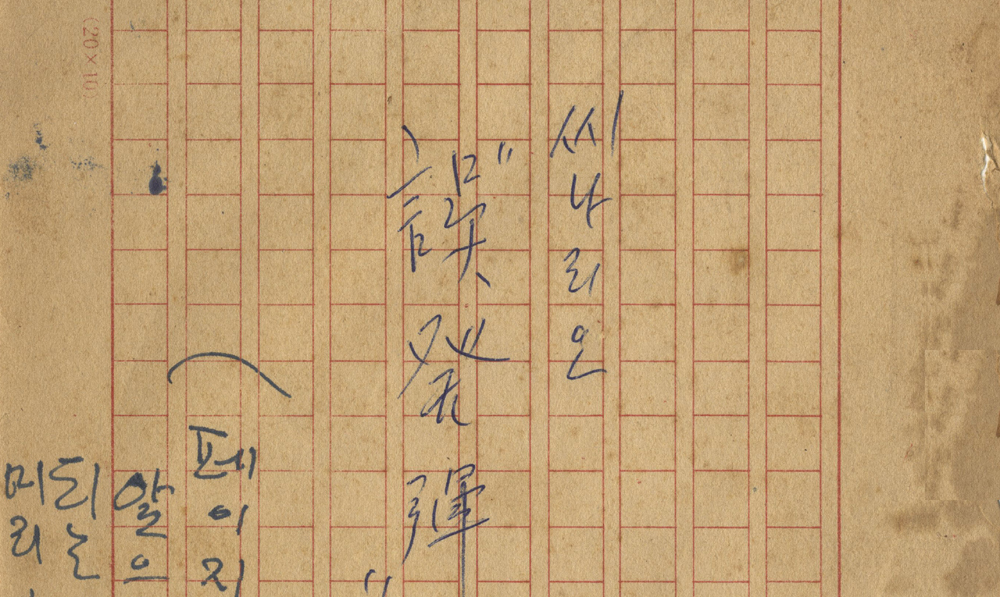 씨나리오
"誤発彈"
(페이지
알으
되는
미리
(20×10)